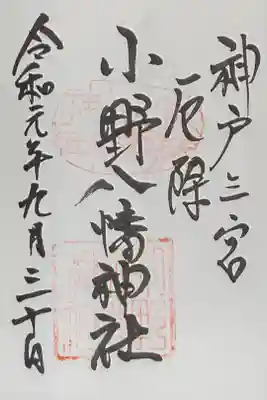 神戸三宮
厄除
小野八幡神社
令和元年九月三十日